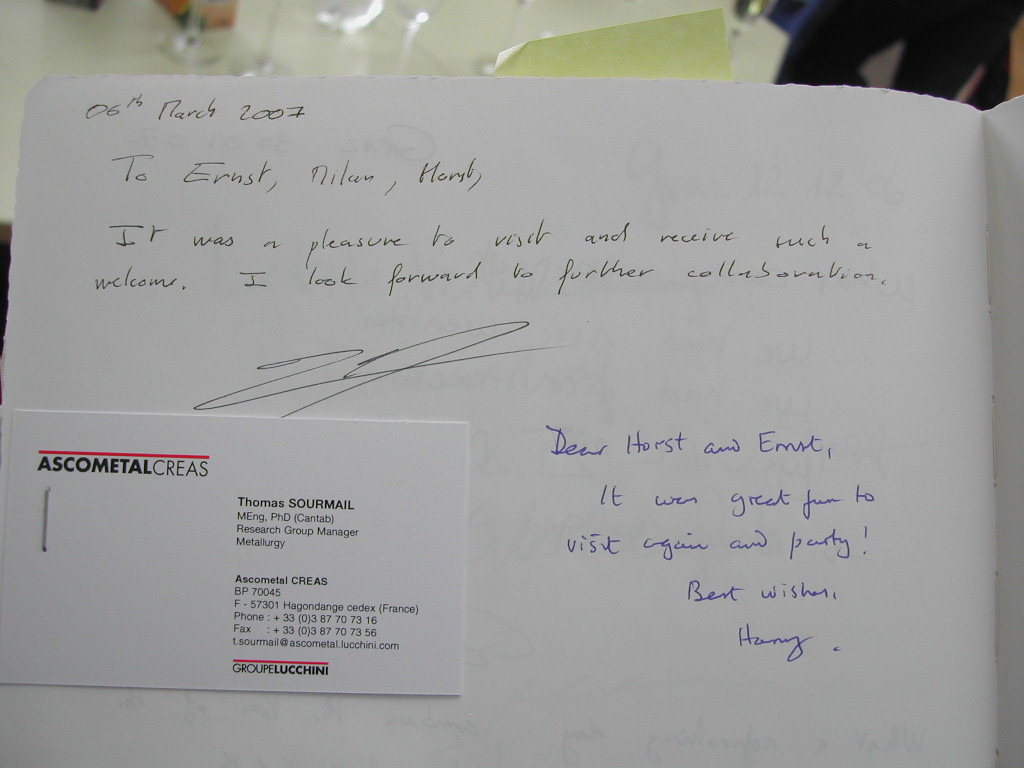 06th March 2007
To Ernst, Milan, Horst,
It was a pleasure to visit and receive such a
welcome. I look forward to further collaboration.
ASCOMETALCREAS
Thomas SOURMAIL
MEng, PhD (Cantab)
Research Group Manager
Metallurgy
Ascometal CREAS
BP 70045
F - 57301 Hagondange cedex (France)
Phone : + 33 (0)3 87 70 73 16
Fax : + 33 (0)3 87 70 73 56
t.sourmail@ascometal.lucchini.com
GROUPELUCCHINI
Dear Horst and Ernst,
It was great fun to
visit again and party!
Best wishes,
Harry.